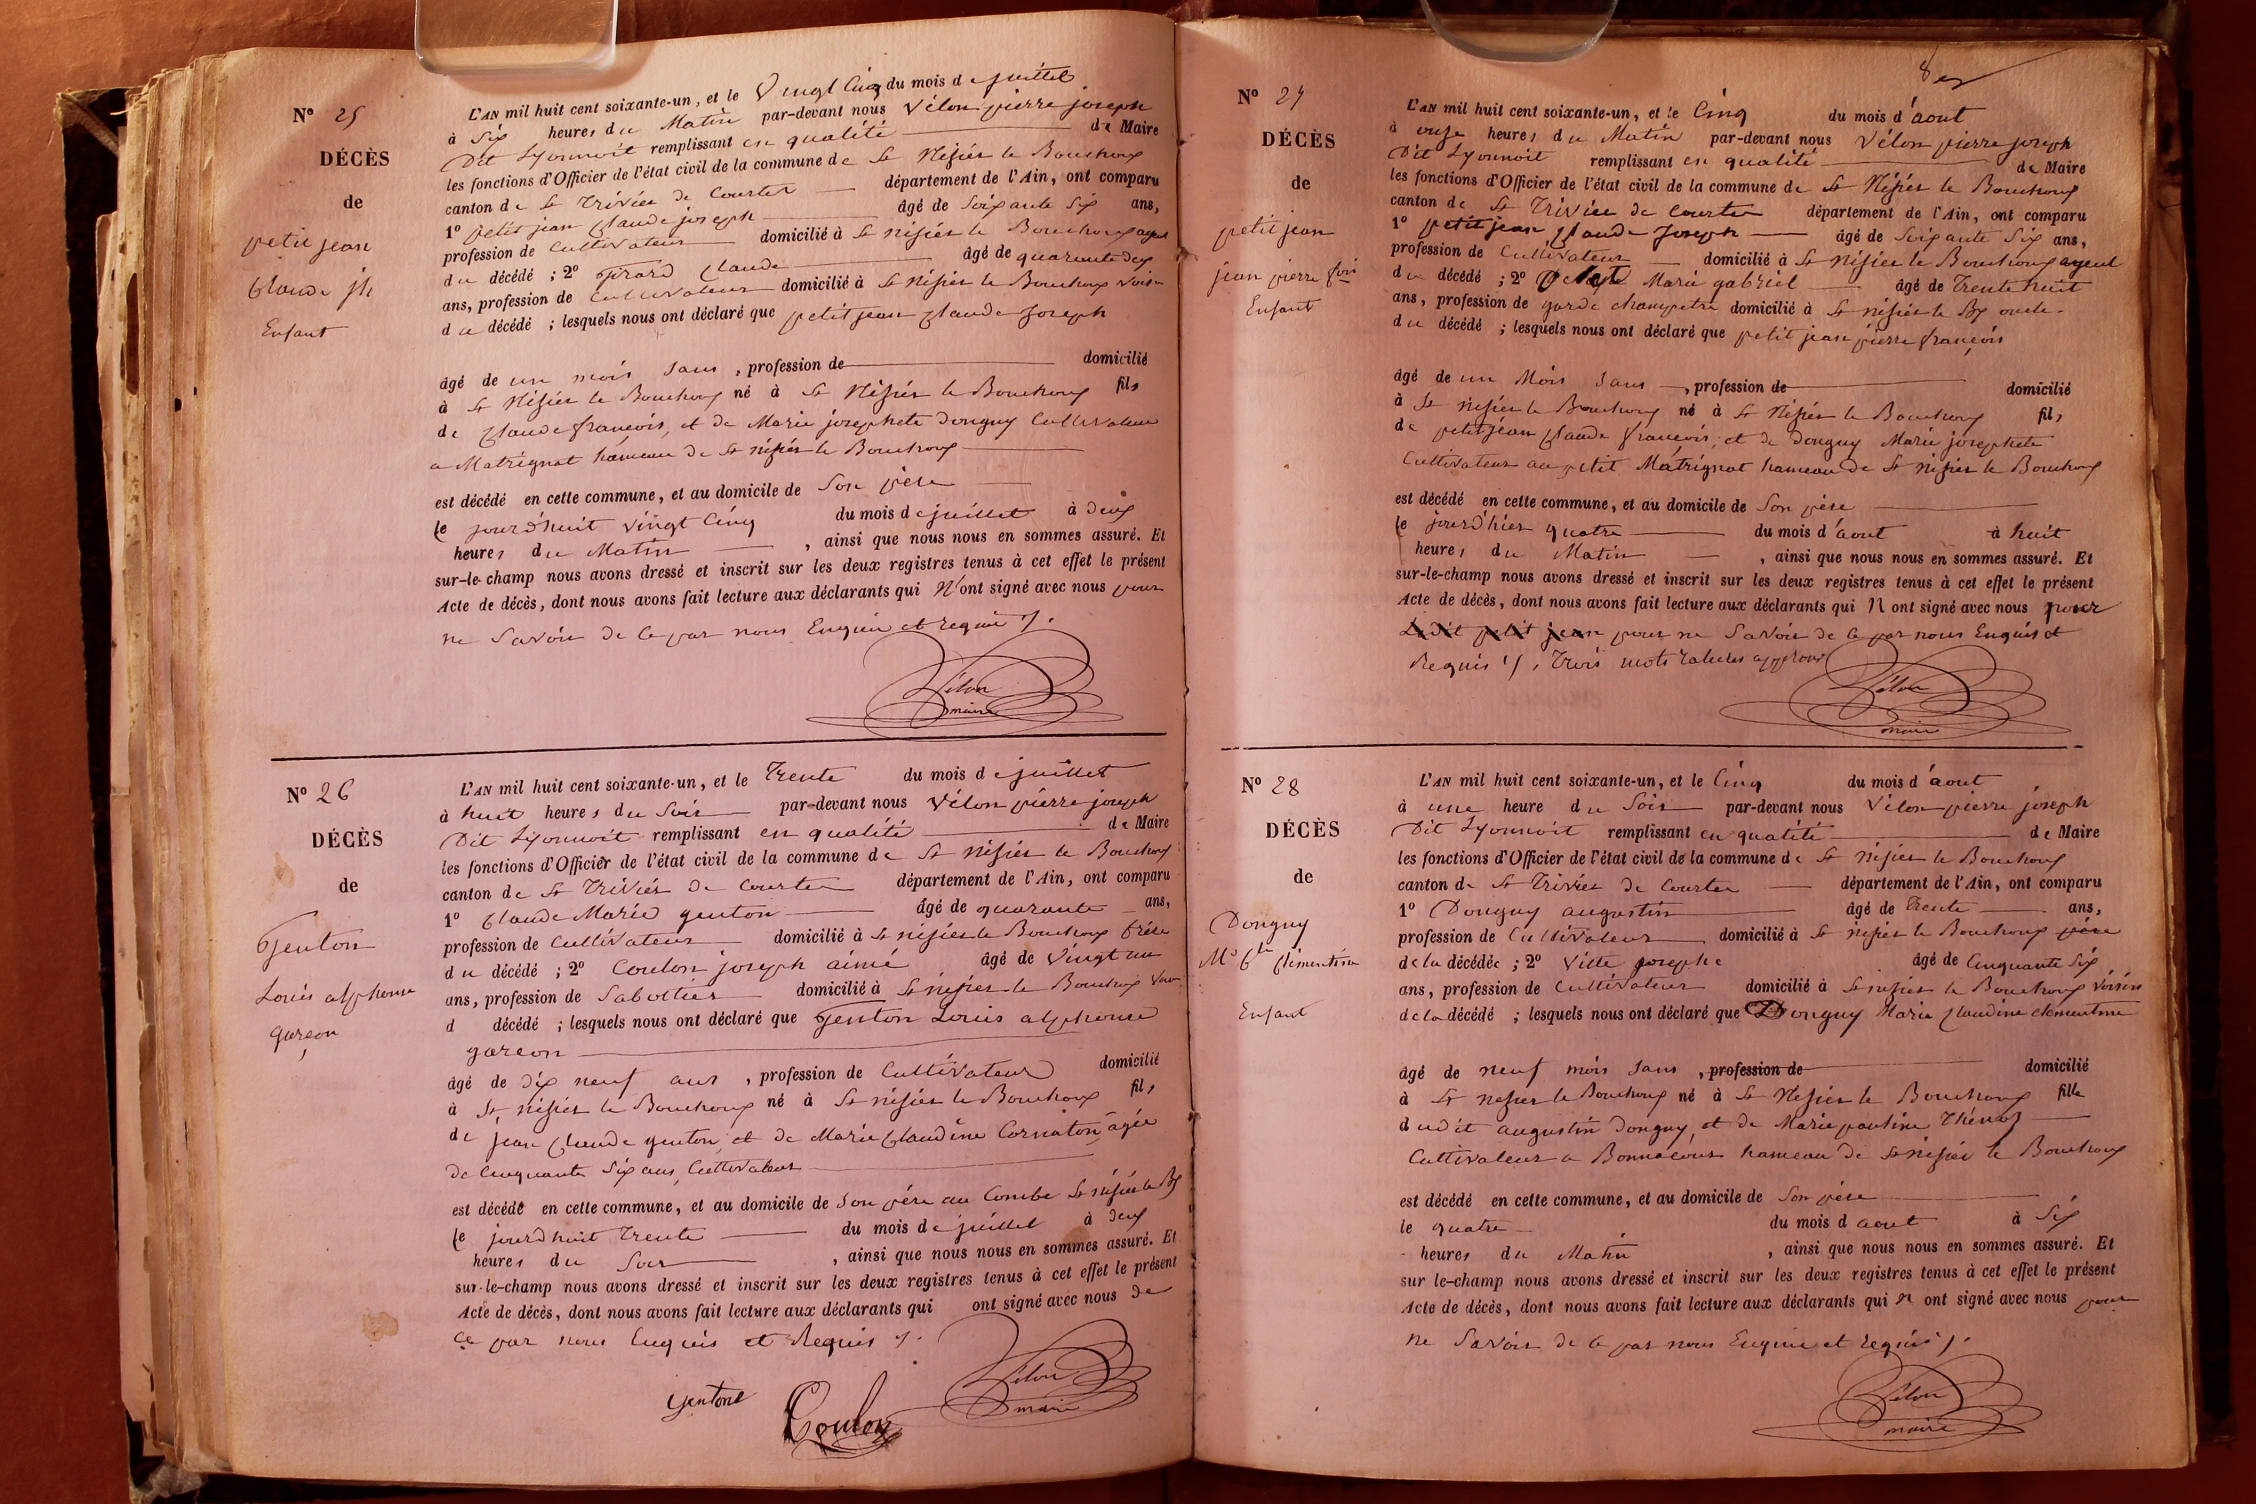 N° 25
DÉCÈS
de
petit jean
Claude jh
Enfant
L'AN mil huit cent soixante-un, et le Vingt Cinq du mois de juillet
à Six heures du Matin par-devant nous Vélon pierre joseph
Dit Lyonnoit remplissant en qualité de Maire
les fonctions d'Officier de l'état civil de la commune de St Nisier le Bouchoux
canton de St Trivier de Courter département de l'Ain, ont comparu
1° petit jean Claude joseph âgé de Soixante Six ans,
profession de Cultivateur domicilié à St nisier le Bouchoux ayeul
du décédé ; 2° Girard Claude âgé de quarante deux
ans, profession de Cultivateur domicilié à St Nisier le Bouchoux Voisin
du décédé ; lesquels nous ont déclaré que petit jean Claude Joseph
âgé de un mois sans , profession de domicilié
à St Nisier le Bouchoux né à St Nisier le Bouchoux fils
de Claude françois, et de Marie josephete Donguy Cultivateur
a Matrignat hameau de St nisier le Bouchoux
est décédé en cette commune, et au domicile de Son père
le jourd'huit vingt Cinq du mois de juillet à deux
heures du Matin , ainsi que nous nous en sommes assuré. Et
sur-le-champ nous avons dressé et inscrit sur les deux registres tenus à cet effet le présent
Acte de décès, dont nous avons fait lecture aux déclarants qui N'ont signé avec nous pour
ne Savoir de Ce par nous Enquis et requis ./.
Vélon
maire
N° 26
DÉCÈS
de
Genton
Louis alphonse
garcon
L'AN mil huit cent soixante-un, et le Trente du mois de juillet
à huit heures du Soir par-devant nous Vélon pierre joseph
Dit Lyonnoit remplissant en qualité de Maire
les fonctions d'Officier de l'état civil de la commune de St Nisier le Bouchoux
canton de St Trivier de Courter département de l'Ain, ont comparu
1° Claude Marie genton âgé de quarante ans,
profession de Cultivateur domicilié à St nisier le Bouchoux frère
du décédé ; 2° Coulon joseph aimé âgé de Vingt un
ans, profession de Sabottier domicilié à St nisier le Bouchoux Voisin
d décédé ; lesquels nous ont déclaré que Genton Louis alphonse
garcon
âgé de dix neuf ans , profession de Cultivateur domicilié
à St nisier le Bouchoux né à St nisier le Bouchoux fils
de jean Claude genton, et de Marie Claudine Cornaton âgée
de Cinquante Six ans, Cultivateur
est décédé en cette commune, et au domicile de Son père au Combe St nisier le Bx
le jourd'huit Trente du mois de juillet à deux
heures du Soir , ainsi que nous nous en sommes assuré. Et
sur-le-champ nous avons dressé et inscrit sur les deux registres tenus à cet effet le présent
Acte de décès, dont nous avons fait lecture aux déclarants qui ont signé avec nous de
Ce par nous Enquis et Requis ./.
genton
Coulon
Vélon
maire
N° 27
DÉCÈS
de
petit jean
jean pierre fois
Enfant
L'AN mil huit cent soixante-un, et le Cinq du mois d'aout
à onze heures du Matin par-devant nous Vélon pierre joseph
Dit Lyonnoit remplissant en qualité de Maire
les fonctions d'Officier de l'état civil de la commune de St Nisier le Bouchoux
canton de St Trivier de Courter département de l'Ain, ont comparu
1° petit jean Claude Joseph âgé de Soixante Six ans,
profession de Cultivateur domicilié à St nisier le Bouchoux ayeul
du décédé ; 2° Marie gabriel âgé de Trente huit
ans, profession de garde champetre domicilié à St nisier le Bx oncle
du décédé ; lesquels nous ont déclaré que petit jean pierre françois
âgé de un Mois sans , profession de domicilié
à St nisier le Bouchoux né à St Nisier le Bouchoux fils
de petit jean Claude françois, et de Donguy Marie josephete
Cultivateur au petit Matrignat hameau de St nisier le Bouchoux
est décédé en cette commune, et au domicile de Son père
le jourd'hier quatre du mois d'aout à huit
heures du Matin , ainsi que nous nous en sommes assuré. Et
sur-le-champ nous avons dressé et inscrit sur les deux registres tenus à cet effet le présent
Acte de décès, dont nous avons fait lecture aux déclarants qui N ont signé avec nous pour
Ledit petit jean pour ne Savoir de Ce par nous Enquis et
Requis ./. Trois mots raturés approuvé
Vélon
maire
N° 28
DÉCÈS
de
Donguy
Clémentine
Enfant
L'AN mil huit cent soixante-un, et le Cinq du mois d'aout
à une heure du Soir par-devant nous Vélon pierre joseph
Dit Lyonnoit remplissant en qualité de Maire
les fonctions d'Officier de l'état civil de la commune de St Nisier le Bouchoux
canton de St Trivier de Courter département de l'Ain, ont comparu
1° Donguy augustin âgé de Trente ans,
profession de Cultivateur domicilié à St nisier le Bouchoux père
de la décédée ; 2° Vitte josephe âgé de Cinquante Six
ans, profession de Cultivateur domicilié à St nisier le Bouchoux Voisin
de la décédé ; lesquels nous ont déclaré que Donguy Marie Claudine clementine
âgé de neuf mois sans , profession de domicilié
à St nisier le Bouchoux né à St Nisier le Bouchoux fille
dudit augustin Donguy, et de Marie pauline Thénoz
Cultivateur a Bonnacour hameau de St nisier le Bouchoux
est décédé en cette commune, et au domicile de Son père
le quatre du mois d aout à Six
heures du Matin , ainsi que nous nous en sommes assuré. Et
sur le-champ nous avons dressé et inscrit sur les deux registres tenus à cet effet le présent
Acte de décès, dont nous avons fait lecture aux déclarants qui n ont signé avec nous pour
ne Savoir de Ce par nous Enquis et requis ./.
Vélon
maire